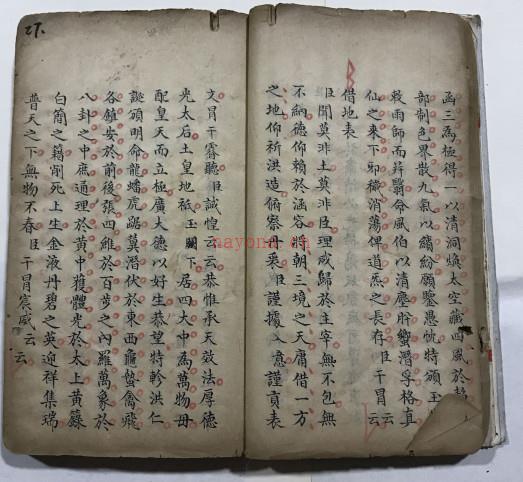 函三為極得一以清洞煥太空藏西風於
部制色界散九氣以繽紛願鑒愚忱特頒玉
敕雨師而弭翳命風伯以清塵肸蠁潛孚格真
仙之來下邪穢消蕩俾道炁之長存臣干冒云
借地表
臣聞莫非土莫非臣理咸歸於主宰無不包無
不納德仰賴於涵容將朝三境之天庸借一方
之地仰祈洪造俯察丹衷臣謹據入意謹貢表
文冒干睿聽臣誠惶云云恭惟承天效法厚德
光太后土皇地祇玉闕下居四大中為萬物母
配皇天而立極廣大德以好生恭望特軫洪仁
誕頒明命龍蟠虎踞冀潛伏於東西龜蛰禽飛
各鎮安於前後張四維於百步之內羅萬象於
八卦之中庶通理於黃中獲體光於太上黃籙
白簡之籍削死上生金液丹碧之英迎祥集瑞
普天之下無物不春臣干冒宸威云云
nayona.cn